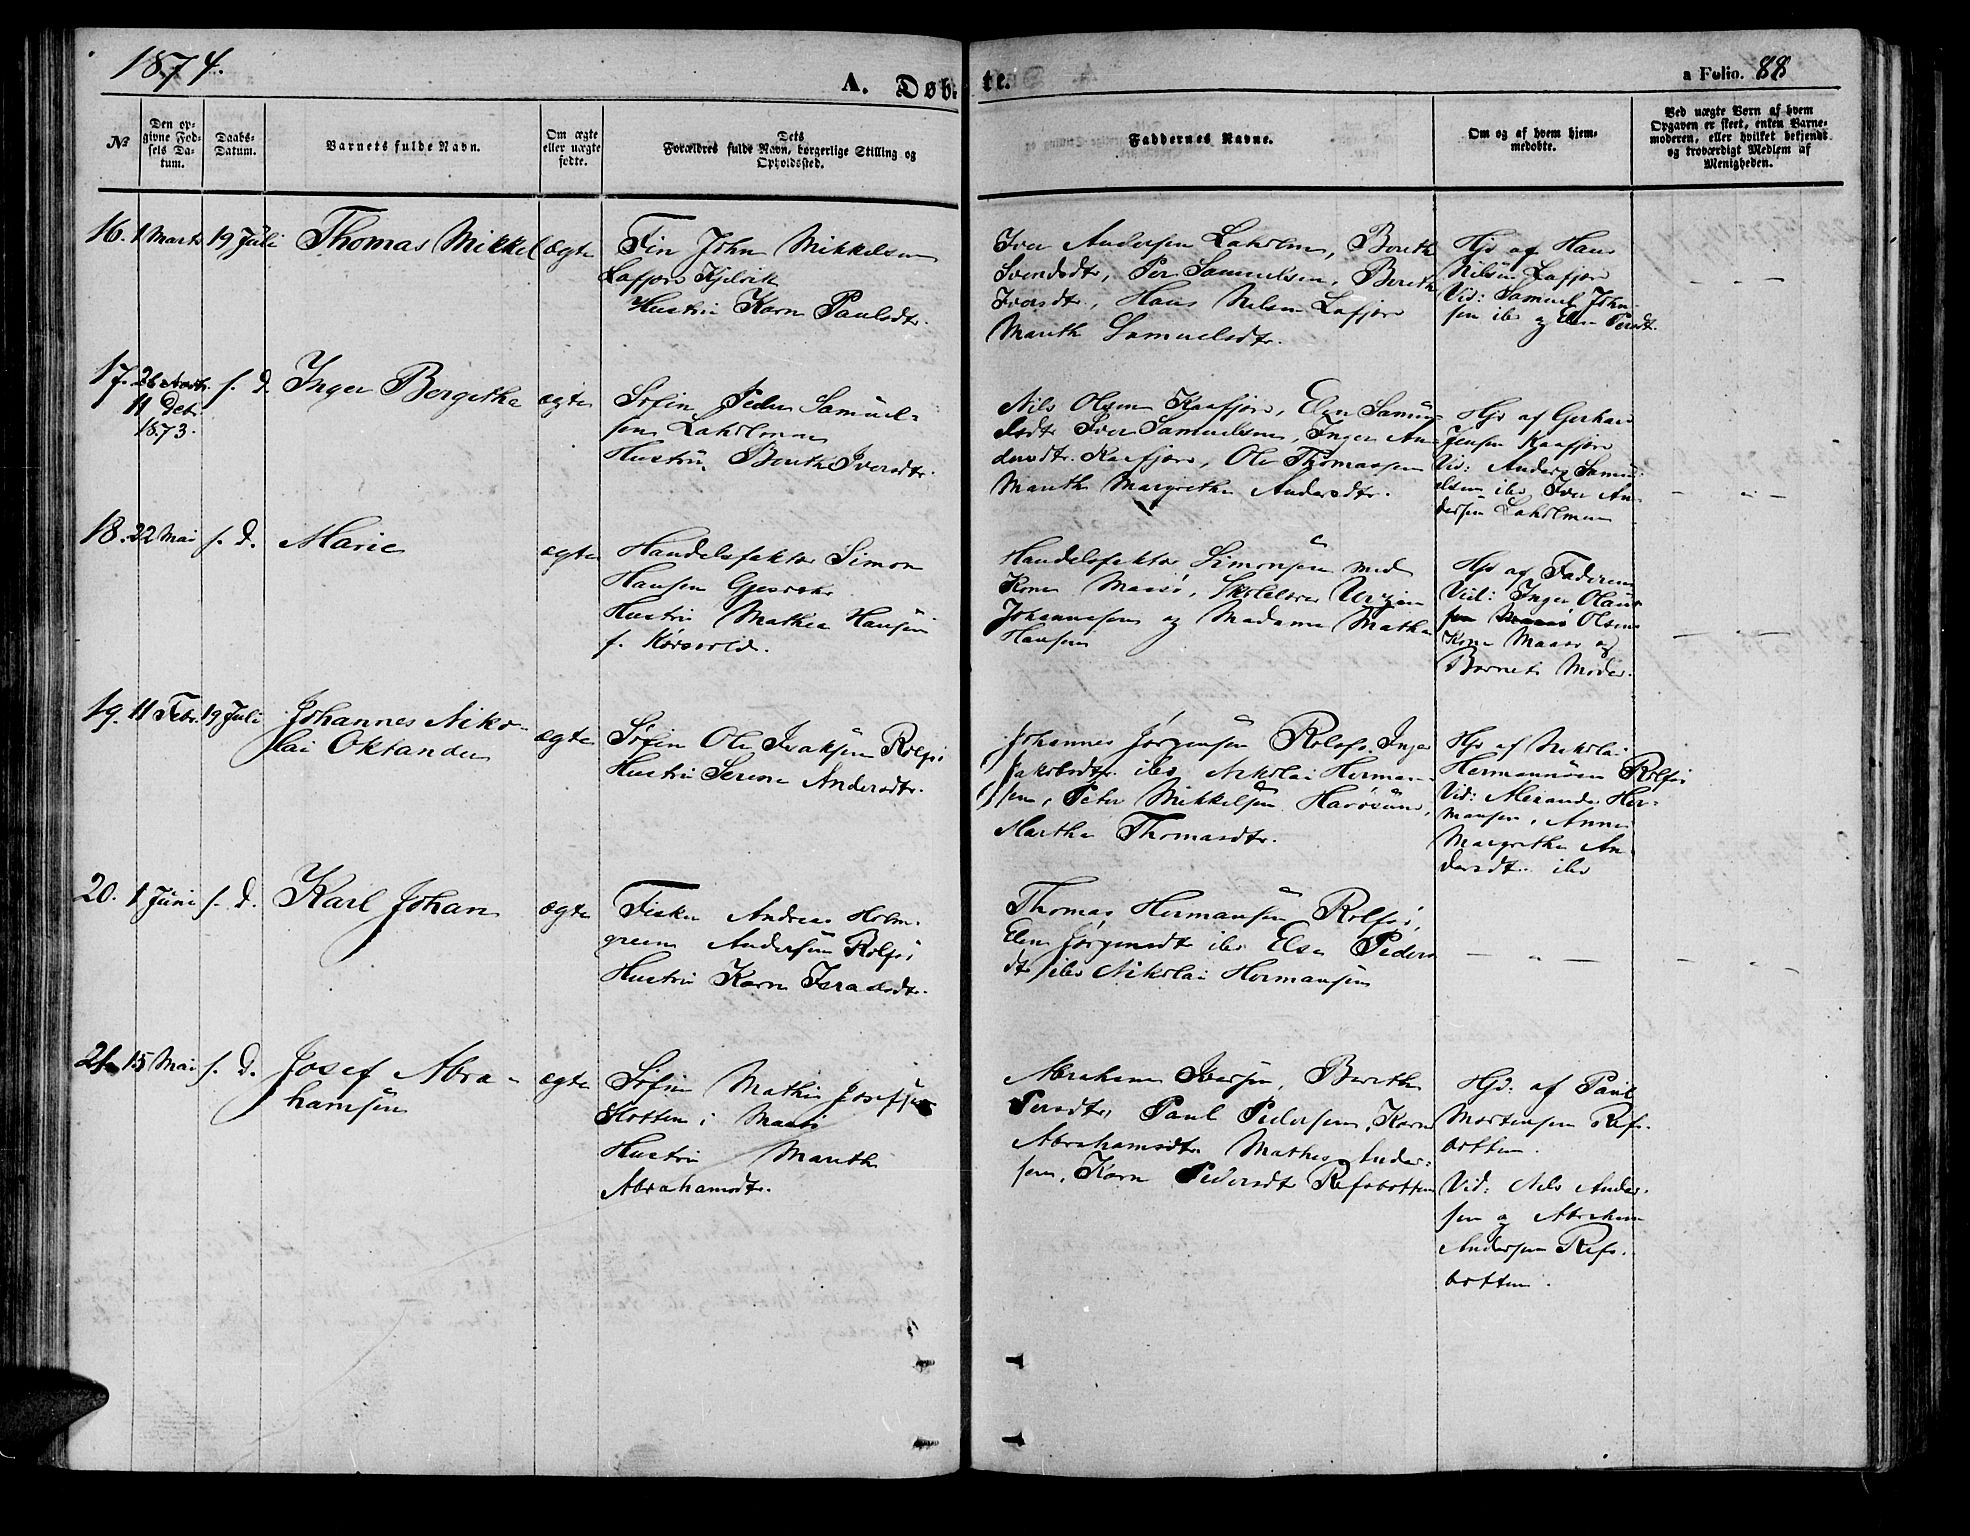 1874.
A. Døb-
te.
a Folio. 88
No
Den op-
givne Fød-
sels Da-
tum.
Daabs-
Datum.
Barnets fulde Navn.
Om ægte
eller uægte
fødte.
Dets
Forældres fulde Navn, borgerlige Stilling og
Opholdssted.
Faddernes Navne.
Om og af hvem hjem-
medøbte.
Ved uægte Børn af hvem
Opgaven er skeet, enten Barne-
moderen, eller hvilket bekjendt
og troværdigt Medlem af
Menigheden.
16. 1 Marts 19 Juli Thomas Mikkel ægte
Fin John Mikkelsen
Lafjord Kjelvik
Hustru Karn Paulsdtr.
Iver Andersen Laholmen, Berith
Svendsdtr, Per Samuelsen, Berith
Iversdtr, Hans Nilsen Lafjord
Marith Samuelsdtr.
Hjd af Hans
Nilsen Lafjord
Vid: Samuel John-
sen ibd og Elen Persdtr.
17. 26 Novbr.
11 Debr
1873.
s. D. Inger Bergithe ægte
Søfin Peder Samuel-
sen Laholmen
Hustru Berith Iversdtr.
Nils Olsen Kaafjord, Elen Samu-
elsdtr Iver Samuelsen, Inger An-
dersdtr. Kaafjord, Ole Thomassen
Marith Margrethe Andersdtr.
Hjd af Gerhard
Jensen Kaafjord
Vid: Anders Samu-
elsen ibd Iver An-
dersen Laholmen
18. 22 Mai s. D. Marie ægte
Handelsfaktor Simon
Hansen Gjesvær
Hustru Mathea Hansen
f. Korsvold.
Handelsfaktor Simonsen med
Kone Maasø, Skolelærer
Johannesen og Madame Mathea
Hansen
Hjd af Faderen
Vid: Inger Olaus
Olsens
Kone Maasø og
Barnets Moder.
19. 11 Febr. 19 Juli Johannes Niko-
lai Oktander ægte
Søfin Ole Isaksen Rolfsø
Hustru Serene Andersdtr.
Johannes Jørgensen Rolfsø. Inger
Jakobsdtr. ibd, Nikolai Herman-
sen, Peter Mikkelsen Havøsund,
Marthe Thomasdtr.
Hjd af Nikolai
Hermansen Rolfsø
Vid: Alexander Her-
mansen, Anne
Margrethe An-
dersdtr. ibd
20. 1 Juni s. D. Karl Johan ægte
Fisker Andreas Holm-
green Andersen Rolfsø
Hustru Karn Israelsdtr.
Thomas Hermansen Rolfsø,
Elen Jørgensdtr ibd Elsa Peders
dtr ibd Nikolai Hermansen
21. 15 Mai s. D. Josef Abra-
hamsen ægte
Søfin Mathis Josefsen
Kotten i Maasø
Hustru Marith
Abrahamsdtr.
Abraham Iversen, Berith
Persdtr, Paul Pedersen, Karn
Abrahamsdtr Mathis Ander-
sen, Karn Pedersdtr Refsbotten
Hjd: af Paul
Mortensen Refs-
botten.
Vid: Nils Ander-
sen og Abraham
Andersen Refs-
botten.